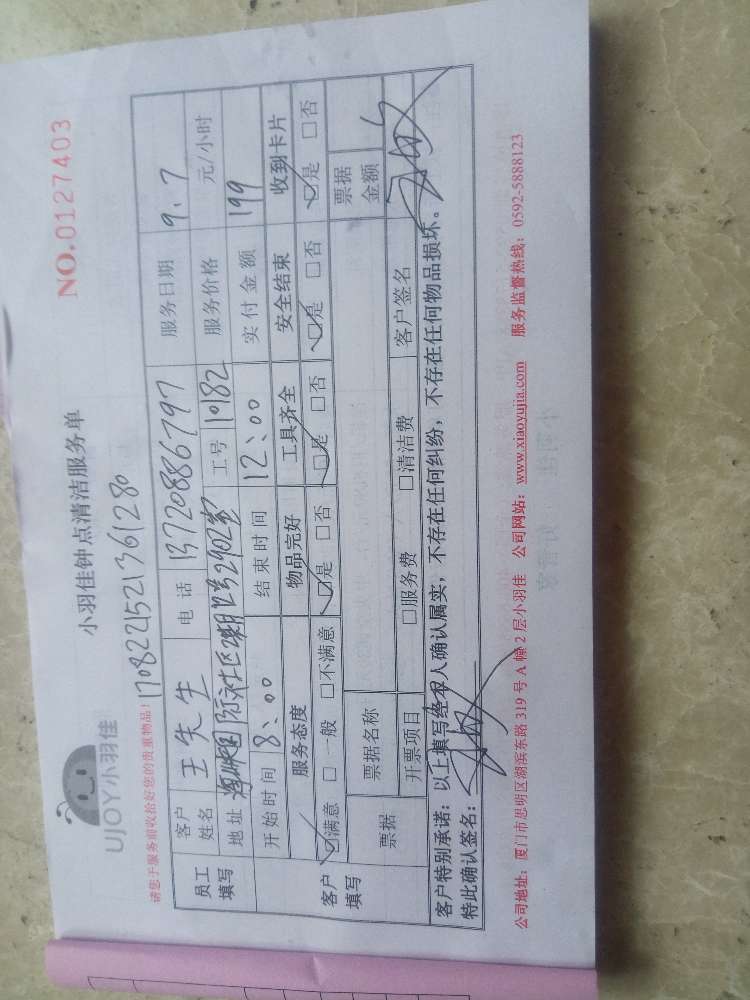 UJOY小羽佳
小羽佳钟点清洁服务单
NO.0127403
请您于服务前收拾好您的贵重物品！
1708221521361280
员工填写
客户姓名 王先生 电话 13720886797 服务日期 9.7
地址 2902室 工号 10182 服务价格 元/小时
开始时间 8:00 结束时间 12:00 实付金额 199
客户填写
服务态度 物品完好 工具齐全 安全结束 收到卡片
☑满意 □一般 □不满意 ☑是 □否 ☑是 □否 ☑是 □否 ☑是 □否
票据 票据名称 票据金额
开票项目 □服务费 □清洁费 客户签名
客户特别承诺：以上填写经本人确认属实，不存在任何纠纷，不存在任何物品损坏。
特此确认签名：
公司地址：厦门市思明区湖滨东路 319 号 A 幢 2 层小羽佳 公司网站：www.xiaoyujia.com 服务监督热线：0592-5888123